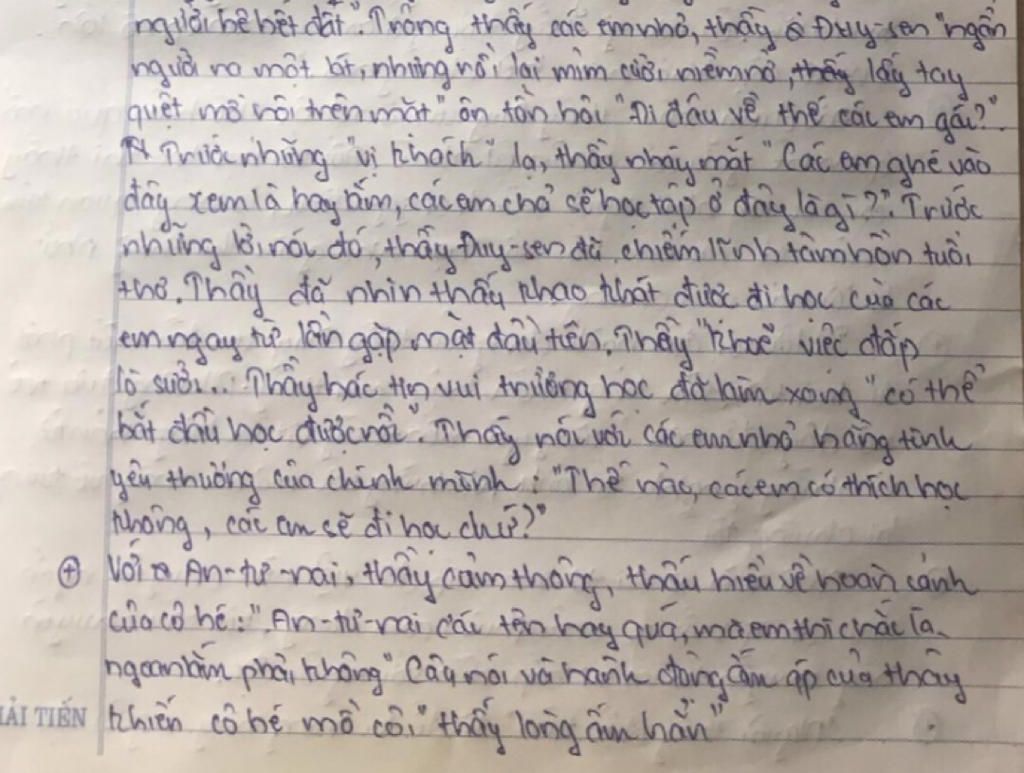 người bê bết đất". Trông thấy các em nhỏ, thầy Đuy-sen "ngẩn
người ra một lát, nhưng rồi lại mỉm cười niềm nở, thầy lấy tay
quệt mồ hôi trên mặt" ôn tồn hỏi "Đi đâu về thế các em gái?".
Trước những "vị khách" lạ, thầy nháy mắt "Các em ghé vào
đây xem là hay lắm, các em chả sẽ học tập ở đây là gì?". Trước
những lời nói đó, thầy Đuy-sen đã chiếm lĩnh tâm hồn tuổi
thơ. Thầy đã nhìn thấy khao khát được đi học của các
em ngay từ lần gặp mặt đầu tiên. Thầy "khoe" việc đắp
lò sưởi... Thầy báo tin vui trường học đã làm xong "có thể
bắt đầu học được rồi". Thầy nói với các em nhỏ bằng tình
yêu thương của chính mình: "Thế nào, các em có thích học
không, các em sẽ đi học chứ?"
⊕ Với An-tư-nai, thầy cảm thông, thấu hiểu về hoàn cảnh
của cô bé: "An-tư-nai cái tên hay quá, mà em thì chắc là
ngoan lắm phải không" Câu nói và hành động ấm áp của thầy
khiến cô bé mồ côi "thấy lòng ấm hẳn"
ẢI TIẾN